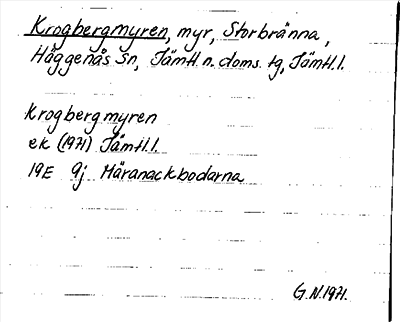 Krogbergmyren, myr, Storbränna,
Häggenås sn, Jämtl. n. doms. tg, Jämtl. l.
Krogbergmyren
ek (1971) Jämtl. l.
19E 9j Häranackbodarna
G.N. 1971.